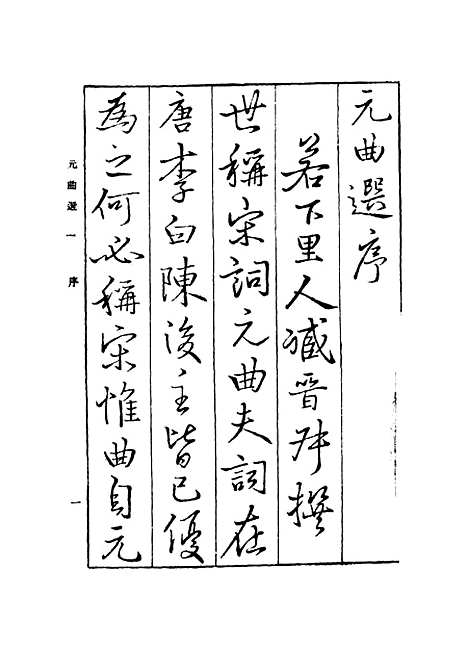 元曲選序
若下里人臧晉叔撰
世稱宋詞元曲夫詞在
唐李白陳後主皆已優
為之何必稱宋惟曲自元
元曲選一 序 一